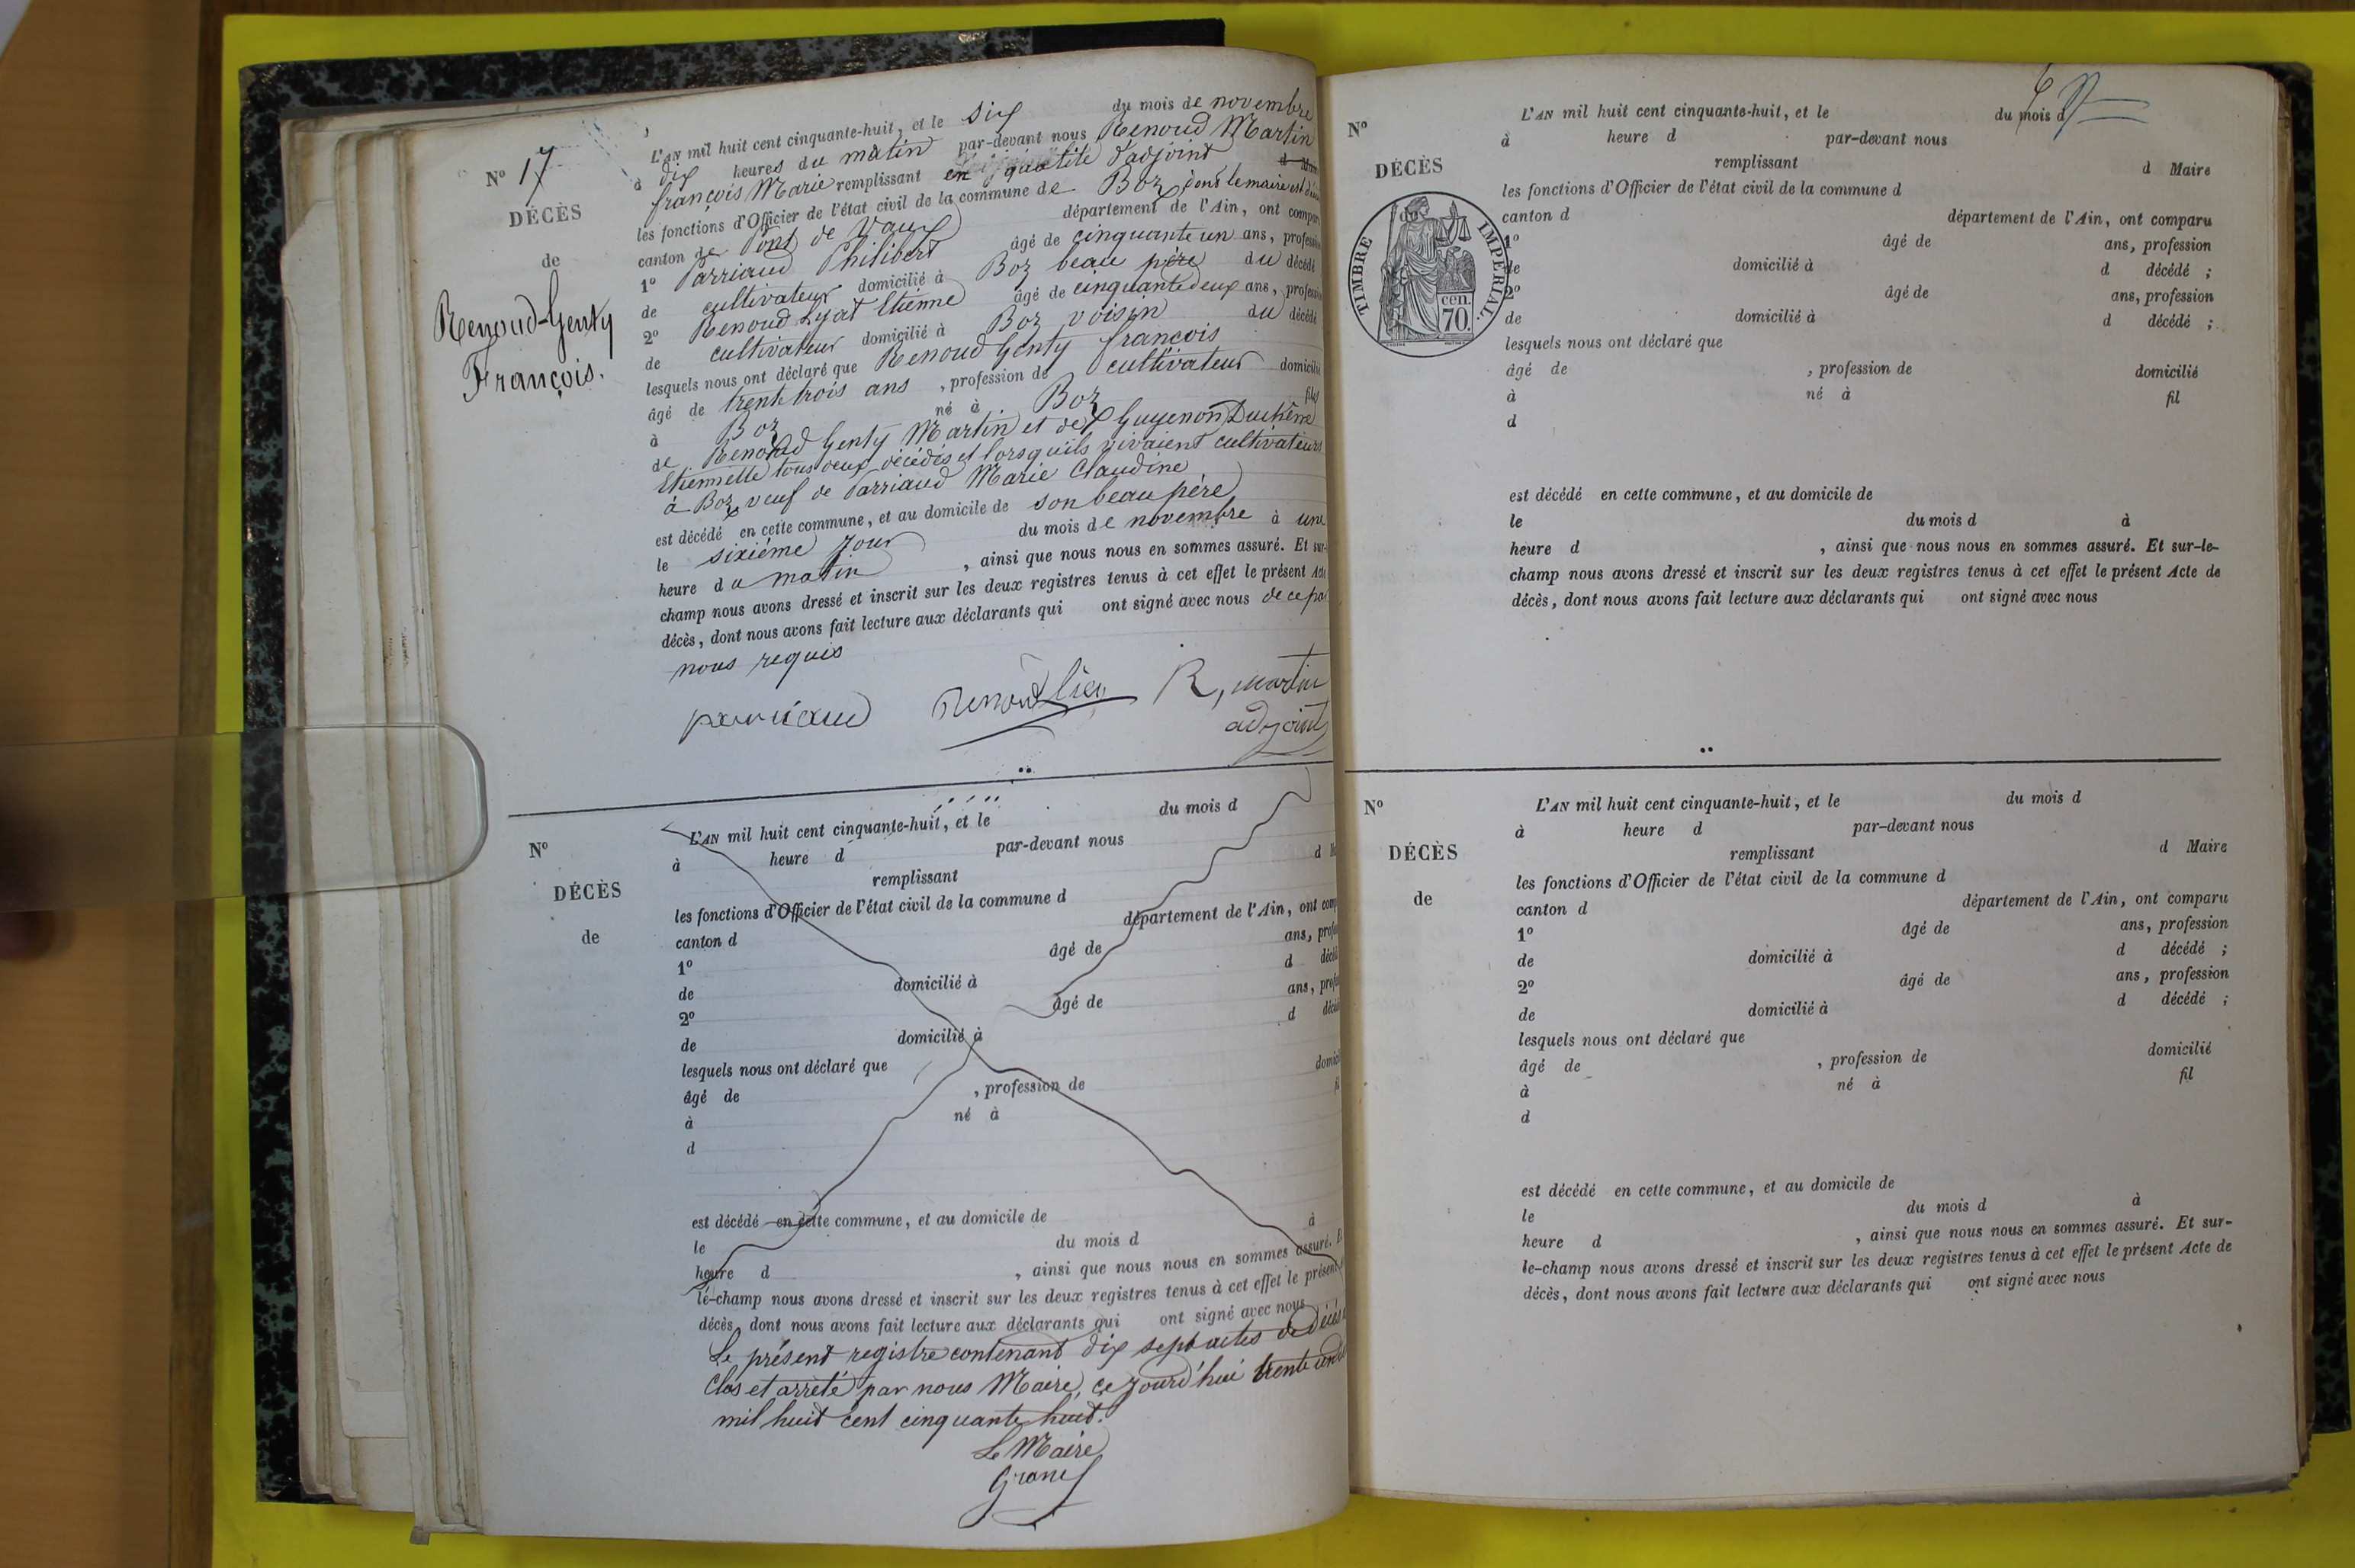 N° 17
DÉCÈS
de
Renoud-Genty
François.
L'AN mil huit cent cinquante-huit, et le six du mois de novembre
à dix heures du matin par-devant nous Renoud Martin
françois Marie remplissant en qualité d'adjoint
les fonctions d'Officier de l'état civil de la commune de Boz dont le maire est
canton de Pont de Vaux département de l'Ain, ont compar
1° Parriaud Philibert âgé de cinquante un ans, profession
de cultivateur domicilié à Boz beau père du décédé
2° Renoud Lyat Etienne âgé de cinquante deux ans, profession
de cultivateur domicilié à Boz voisin du décédé
lesquels nous ont déclaré que Renoud Genty françois
âgé de trente trois ans , profession de cultivateur domicilié
à Boz né à Boz fils
de Renoud Genty Martin et de Guyenon Duchêne
Etiennette tous deux décédés et lorsqu'ils vivaient cultivateurs
à Boz veuf de Parriaud Marie Claudine
est décédé en cette commune, et au domicile de son beau père
le sixième jour du mois de novembre à une
heure du matin , ainsi que nous nous en sommes assuré. Et sur-
champ nous avons dressé et inscrit sur les deux registres tenus à cet effet le présent Acte
décès, dont nous avons fait lecture aux déclarants qui ont signé avec nous de ce par
nous requis
parriaud R, martin
adjoint
N°
DÉCÈS
de
L'AN mil huit cent cinquante-huit, et le du mois d
à heure d par-devant nous
remplissant d
les fonctions d'Officier de l'état civil de la commune d
canton d département de l'Ain, ont comp
1° âgé de ans, profes
de domicilié à d décédé
2° âgé de ans, profes
de domicilié à d décédé
lesquels nous ont déclaré que
âgé de , profession de domicil
à né à fi
d
est décédé en cette commune, et au domicile de
le du mois d à
heure d , ainsi que nous nous en sommes assuré. E
le-champ nous avons dressé et inscrit sur les deux registres tenus à cet effet le présent
décès, dont nous avons fait lecture aux déclarants qui ont signé avec nous
Le présent registre contenant dix sept actes de décès
Clos et arrêté par nous Maire, ce jourd'hui trente un
mil huit cent cinquante huit.
Le Maire
N°
DÉCÈS
de
TIMBRE IMPERIAL.
cen.
70.
L'AN mil huit cent cinquante-huit, et le du mois d
à heure d par-devant nous
remplissant d Maire
les fonctions d'Officier de l'état civil de la commune d
canton d département de l'Ain, ont comparu
1° âgé de ans, profession
de domicilié à d décédé ;
2° âgé de ans, profession
de domicilié à d décédé ;
lesquels nous ont déclaré que
âgé de , profession de domicilié
à né à fil
d
est décédé en cette commune, et au domicile de
le du mois d à
heure d , ainsi que nous nous en sommes assuré. Et sur-le-
champ nous avons dressé et inscrit sur les deux registres tenus à cet effet le présent Acte de
décès, dont nous avons fait lecture aux déclarants qui ont signé avec nous
N°
DÉCÈS
de
L'AN mil huit cent cinquante-huit, et le du mois d
à heure d par-devant nous
remplissant d Maire
les fonctions d'Officier de l'état civil de la commune d
canton d département de l'Ain, ont comparu
1° âgé de ans, profession
de domicilié à d décédé ;
2° âgé de ans, profession
de domicilié à d décédé ;
lesquels nous ont déclaré que
âgé de , profession de domicilié
à né à fil
d
est décédé en cette commune, et au domicile de
le du mois d à
heure d , ainsi que nous nous en sommes assuré. Et sur-
le-champ nous avons dressé et inscrit sur les deux registres tenus à cet effet le présent Acte de
décès, dont nous avons fait lecture aux déclarants qui ont signé avec nous